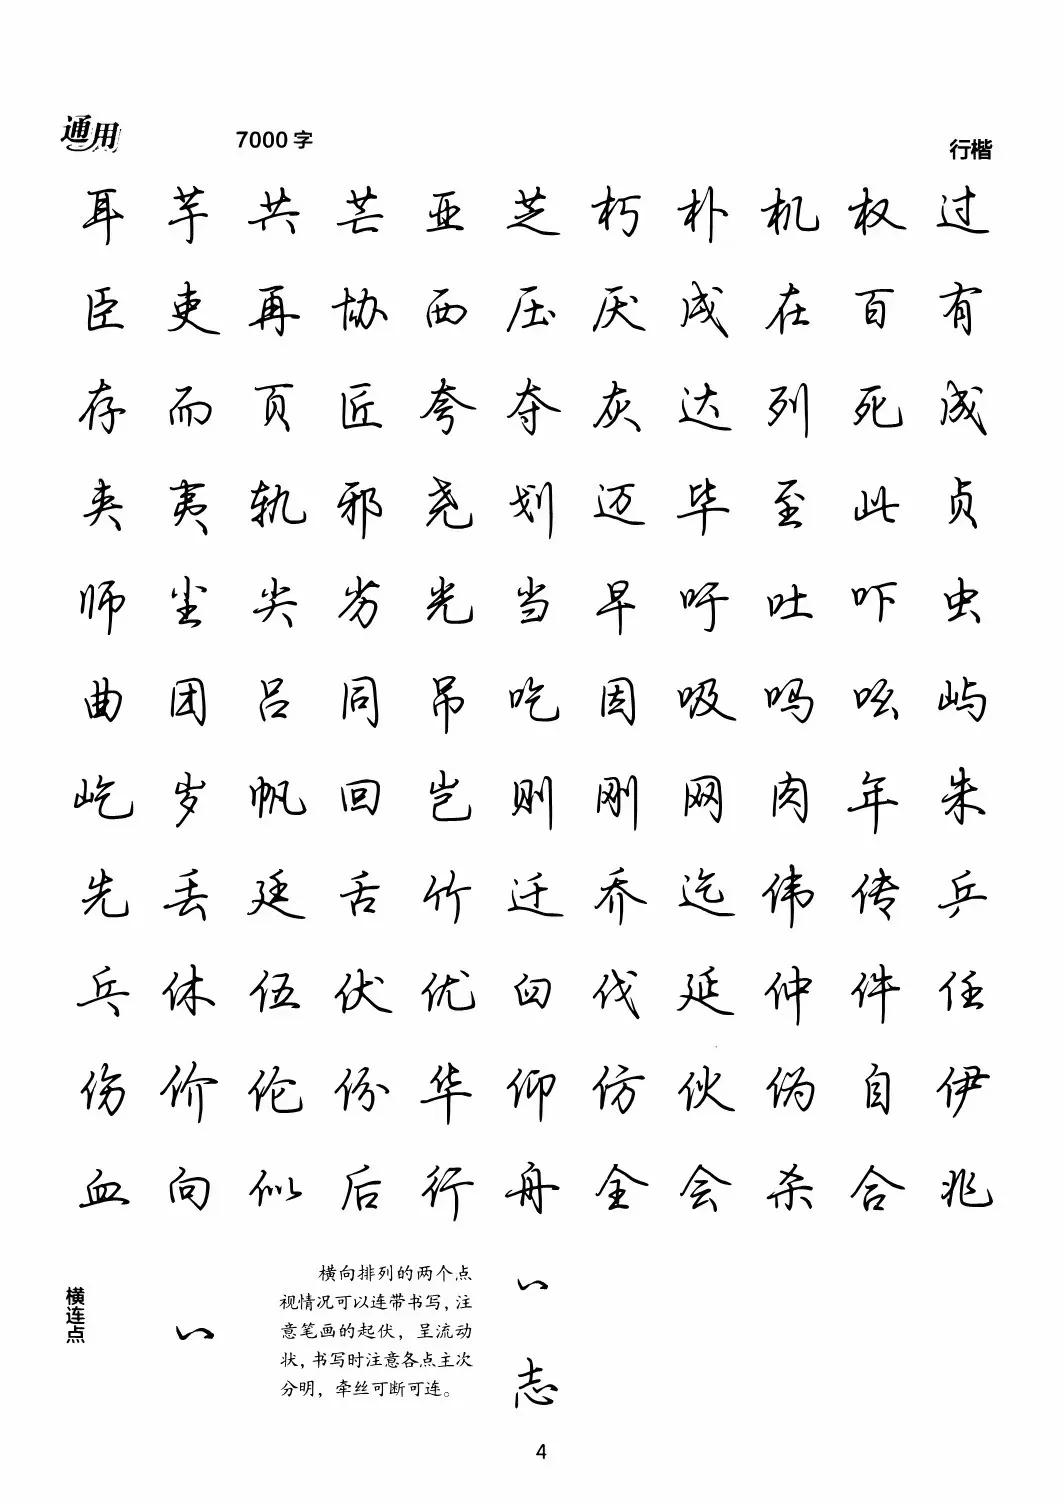 通用 7000 字 行楷
耳 芋 共 芒 亚 芝 朽 朴 机 权 过
臣 吏 再 协 西 压 厌 戌 在 百 有
存 而 页 匠 夸 夺 灰 达 列 死 成
夹 夷 轨 邪 尧 划 迈 毕 至 此 贞
师 尘 尖 劣 光 当 早 吁 吐 吓 虫
曲 团 吕 同 吊 吃 因 吸 吗 吆 屿
屹 岁 帆 回 岂 则 刚 网 肉 年 朱
先 丢 廷 舌 竹 迁 乔 迄 伟 传 乒
乓 休 伍 伏 优 臼 伐 延 仲 件 任
伤 价 伦 份 华 仰 仿 伙 伪 自 伊
血 向 似 后 行 舟 全 会 杀 合 兆
横连点
横向排列的两个点
视情况可以连带书写，注
意笔画的起伏，呈流动
状，书写时注意各点主次
分明，牵丝可断可连。
志
4